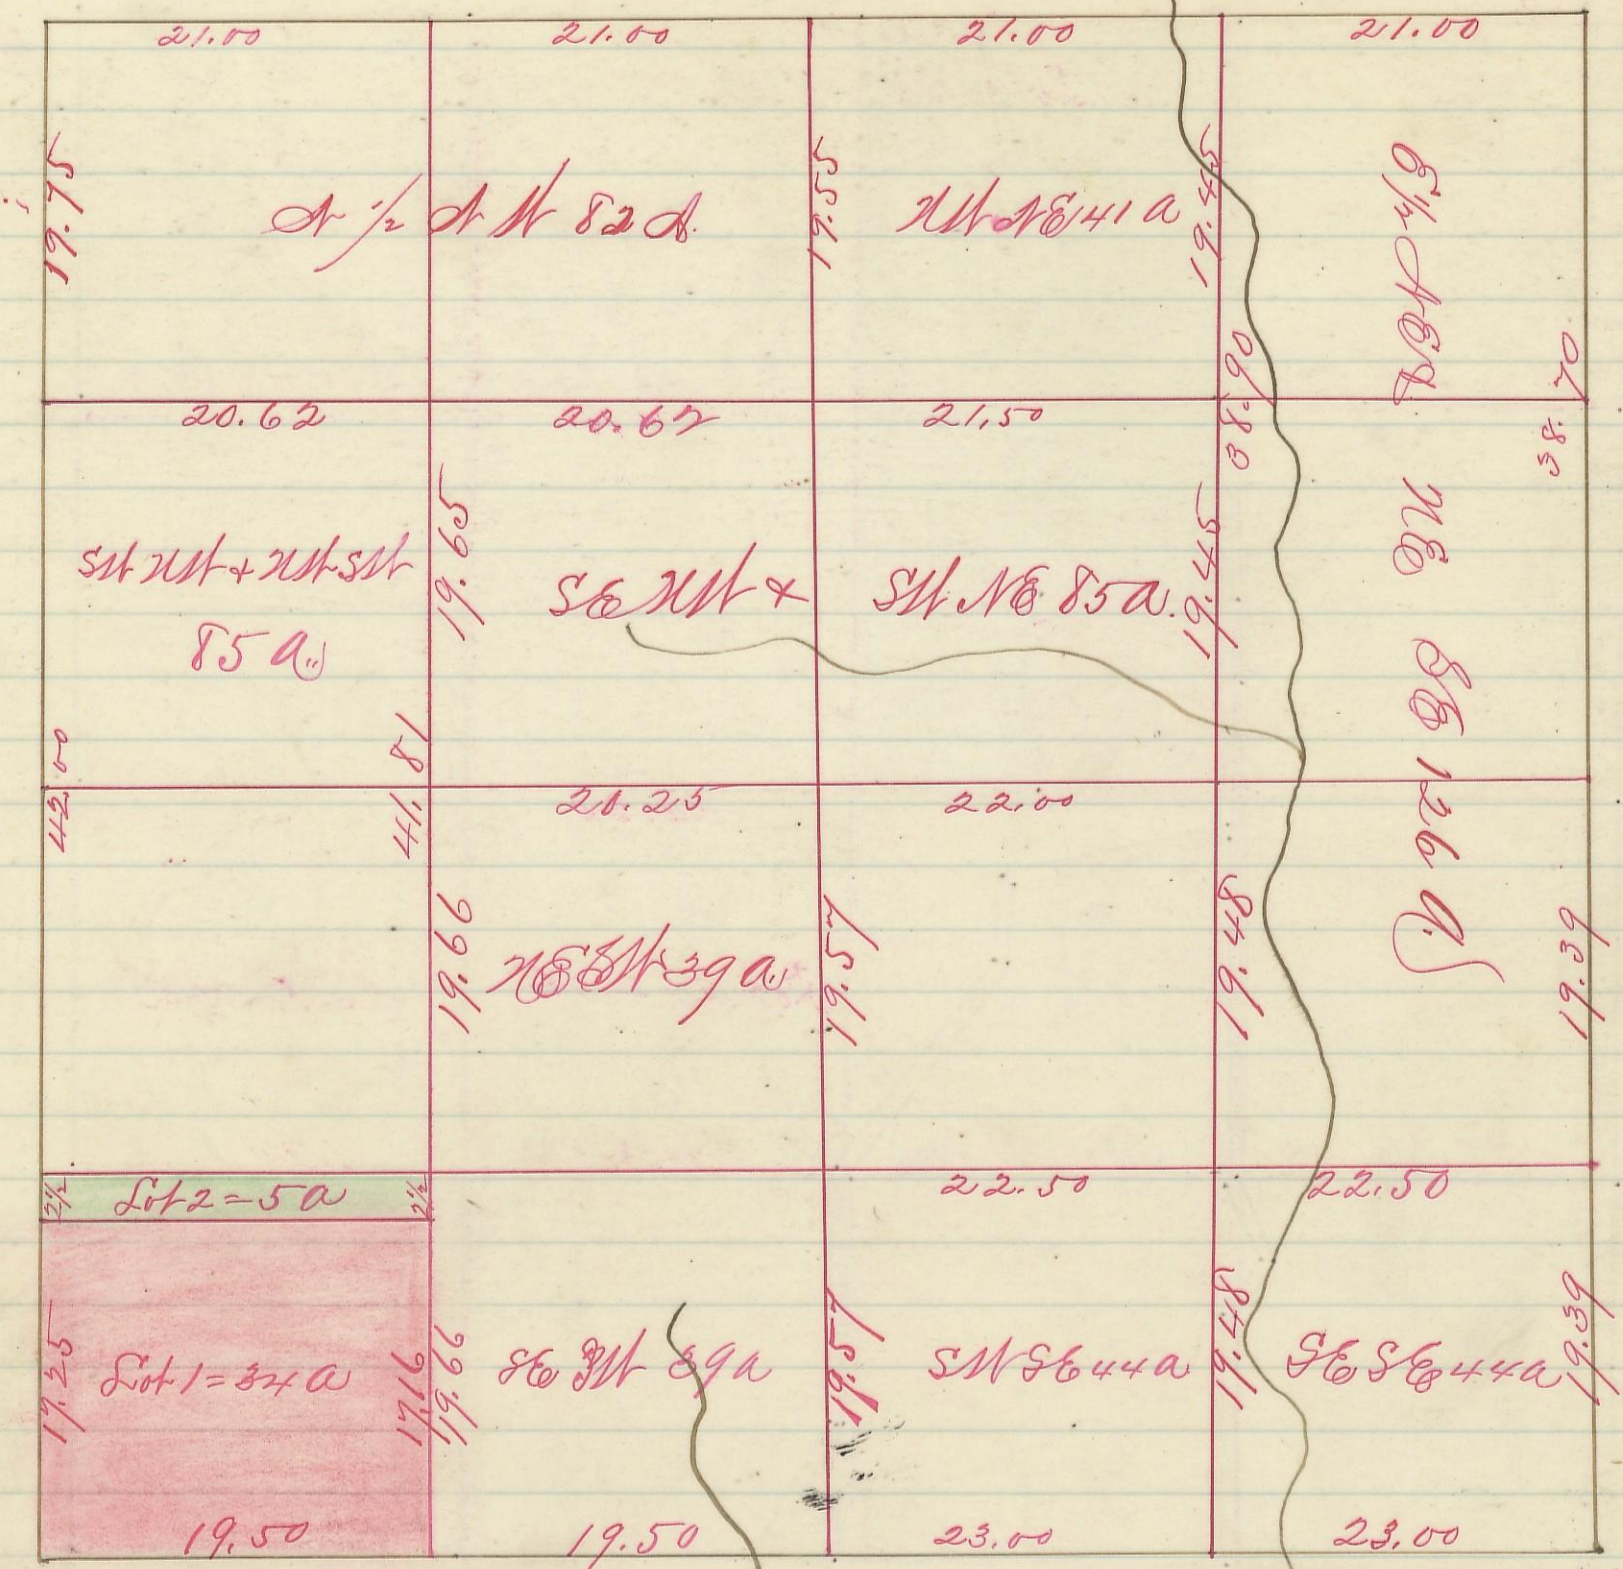 21.00
21.00
21.00
21.00
19.75
N ½ N W 82 A.
19.55
NW NE 41 a
19.45
E ½ NE &
NE SE 126 A.
38.90
38.70
20.62
20.62
21.50
SW NW + NW SW
85 a.
19.65
SE NW &
SW NE 85 a.
19.45
42.00
41.81
20.25
22.00
19.66
NE SW 39 a
19.57
19.48
19.39
2½
Lot 2 = 5 a
2½
22.50
22.50
17.25
Lot 1 = 34 a
17.16
19.66
SE SW 39 a
19.57
SW SE 44 a
19.48
SE SE 44 a
19.39
19.50
19.50
23.00
23.00